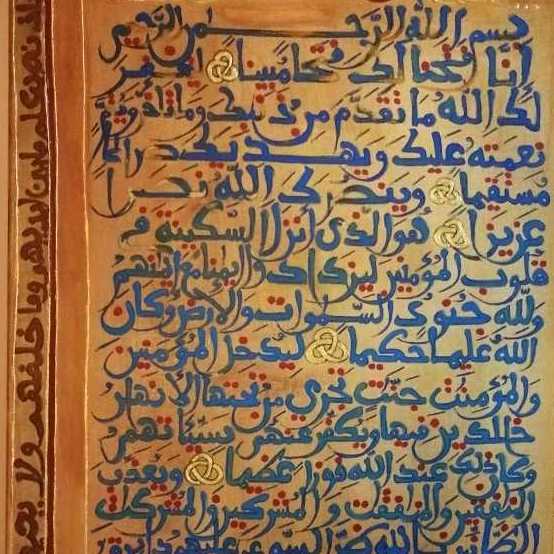 بسم الله الرحمن الرحيم
إنا فتحنا لك فتحا مبينا ليغفر
لك الله ما تقدم من ذنبك وما تأخر ويتم
نعمته عليك ويهديك صراطا
مستقيما وينصرك الله نصرا
عزيزا هو الذي أنزل السكينة في
قلوب المؤمنين ليزدادوا إيمانا مع إيمانهم
ولله جنود السموات والأرض وكان
الله عليما حكيما ليدخل المؤمنين
والمؤمنت جنت تجري من تحتها الأنهر
خلدين فيها ويكفر عنهم سيئاتهم
وكان ذلك عند الله فوزا عظيما ويعذب
المنفقين والمنفقت والمشركين والمشركت
الظانين بالله ظن السوء عليهم دائرة
يعلم ما بين أيديهم وما خلفهم ولا